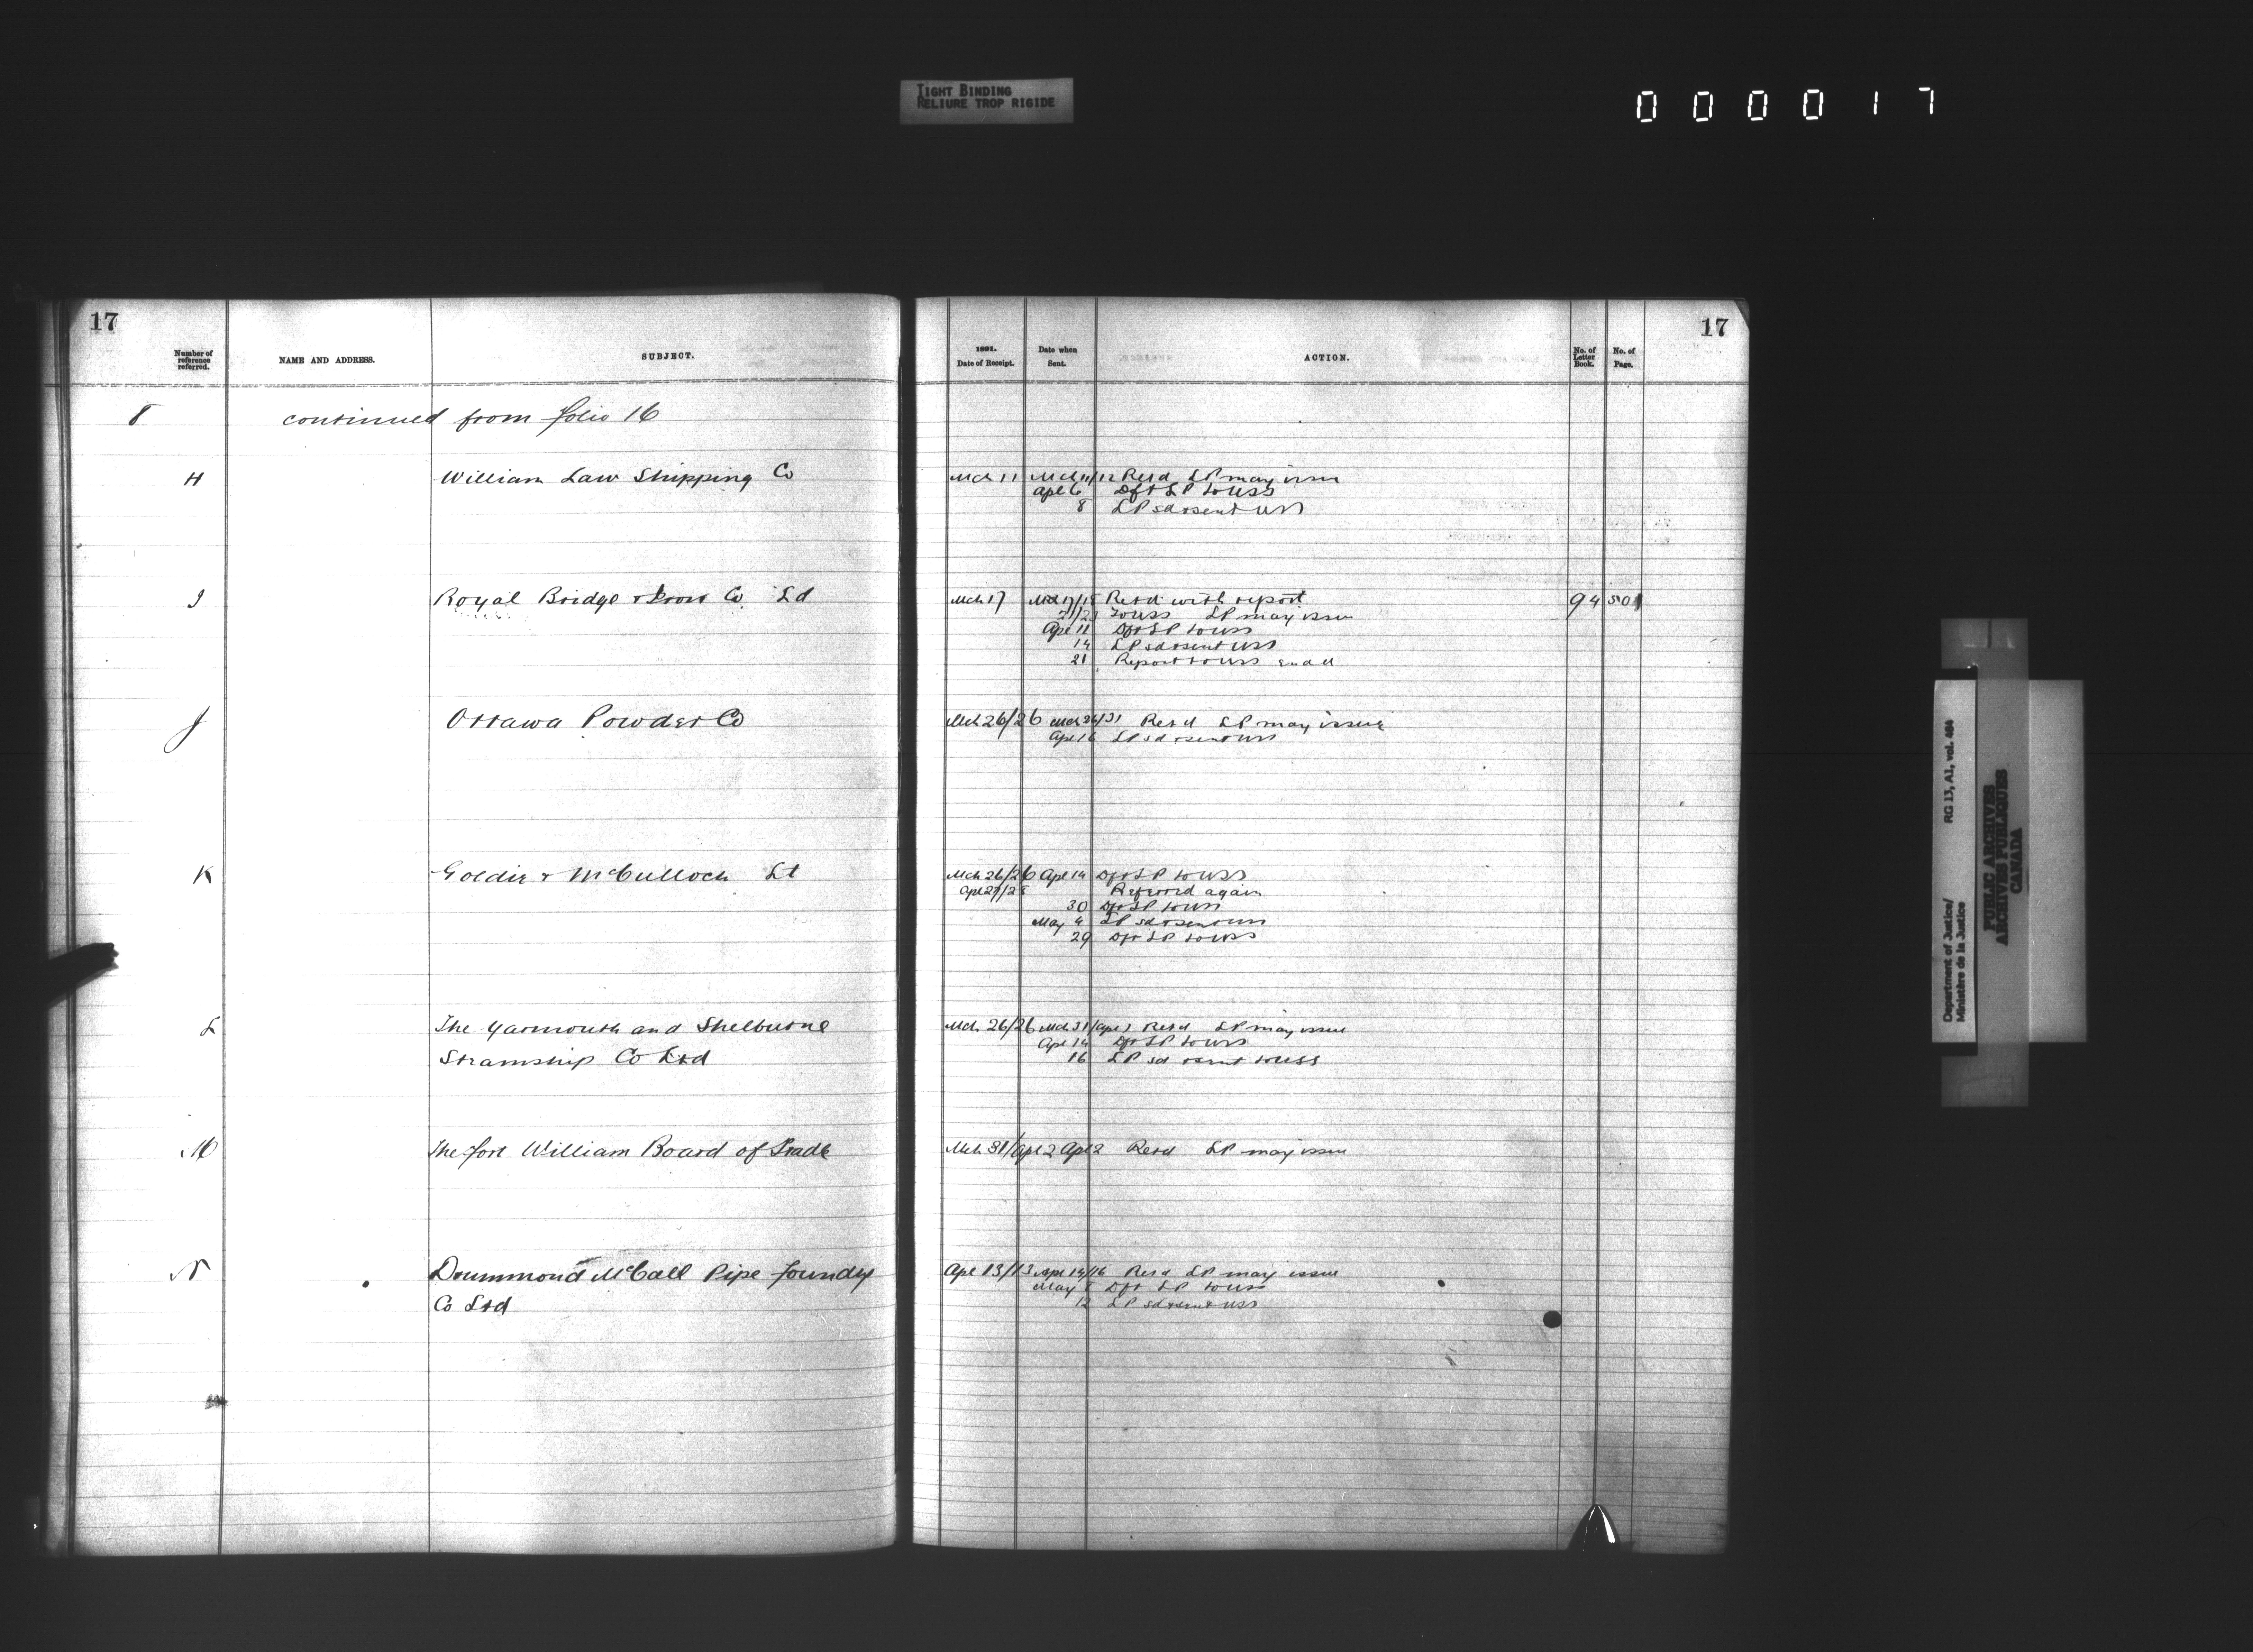 TIGHT BINDING
RELIURE TROP RIGIDE
000017
17
Number of reference referred.
NAME AND ADDRESS.
SUBJECT.
8 continued from folio 16
H William Law Shipping Co
I Royal Bridge & Iron Co Ld
J Ottawa Powder Co
K Goldie & McCulloch Lt
L The Yarmouth and Shelburne
Steamship Co Ltd
M The Fort William Board of Trade
N Drummond McCall Pipe Foundry
Co Ltd
17
1891.
Date of Receipt.
Date when Sent.
ACTION.
No. of Letter Book.
No. of Page.
Mch 11 Mch 11/12 Retd LP may issue
Apl 6 Dft LP to USS
8 LP sd & sent USS
Mch 17 Mch 17/18 Retd with report 94 501
21/23 To USS LP may issue
Apl 11 Dft LP to USS
14 LP sd & sent USS
21 Report to USS
Mch 26/26 Mch 26/31 Retd LP may issue
Apl 16 LP sd & sent USS
Mch 26/26 Apl 14 Dft LP to USS
Apl 27/28 Referred again
30 Dft LP to USS
May 4 LP sd & sent USS
29 Dft LP to USS
Mch 26/26 Mch 31/Apl 1 Retd LP may issue
Apl 14 Dft LP to USS
16 LP sd & sent to USS
Mch 31/Apl 2 Apl 2 Retd LP may issue
Apl 13/13 Apl 14/16 Retd LP may issue
May 8 Dft LP to USS
12 LP sd & sent USS
Department of Justice/ RG 13, A1, vol. 484
Ministère de la Justice
PUBLIC ARCHIVES
ARCHIVES PUBLIQUES
CANADA